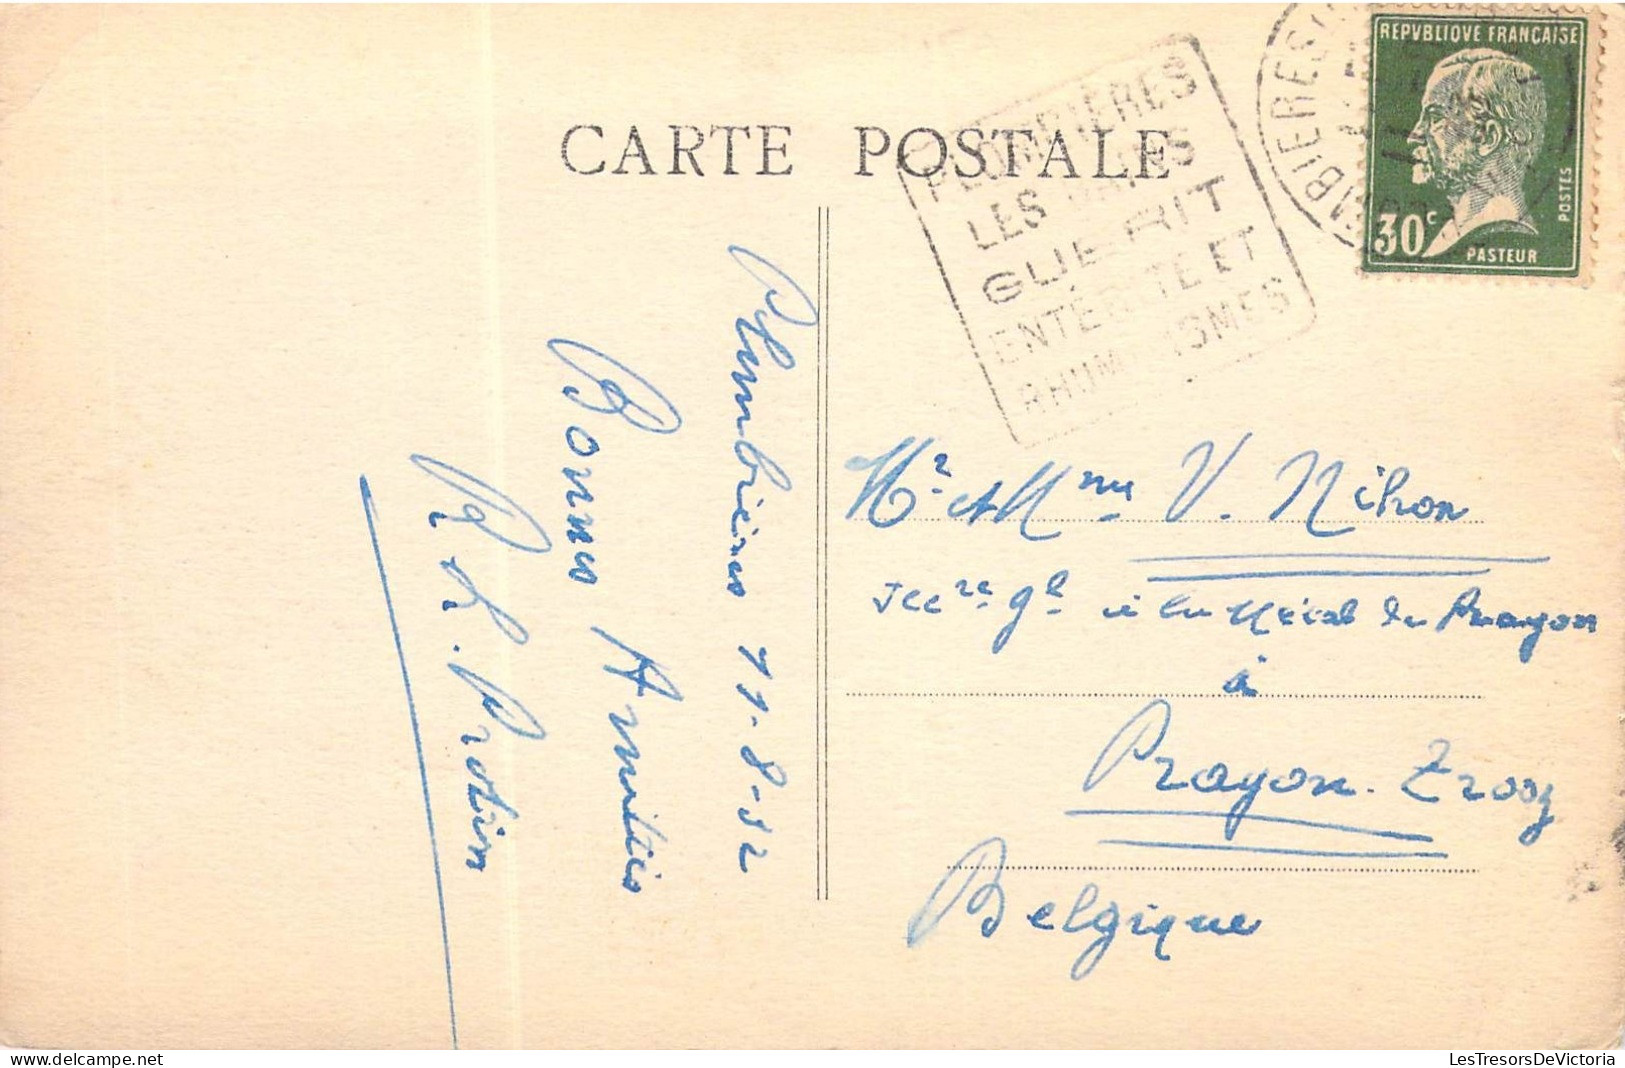 CARTE POSTALE
PLOMBIÈRES
LES BAINS
GUÉRIT
ENTÉRITE ET
RHUMATISMES
REPVBLIQVE FRANÇAISE
30c
POSTES
PASTEUR
Plombières 11-8-32
Bonnes Amitiés
Protin
Mr et Mme V. Nihon
Secre gl à la Métal de Prayon
à
Prayon-Trooz
Belgique
LesTresorsDeVictoria